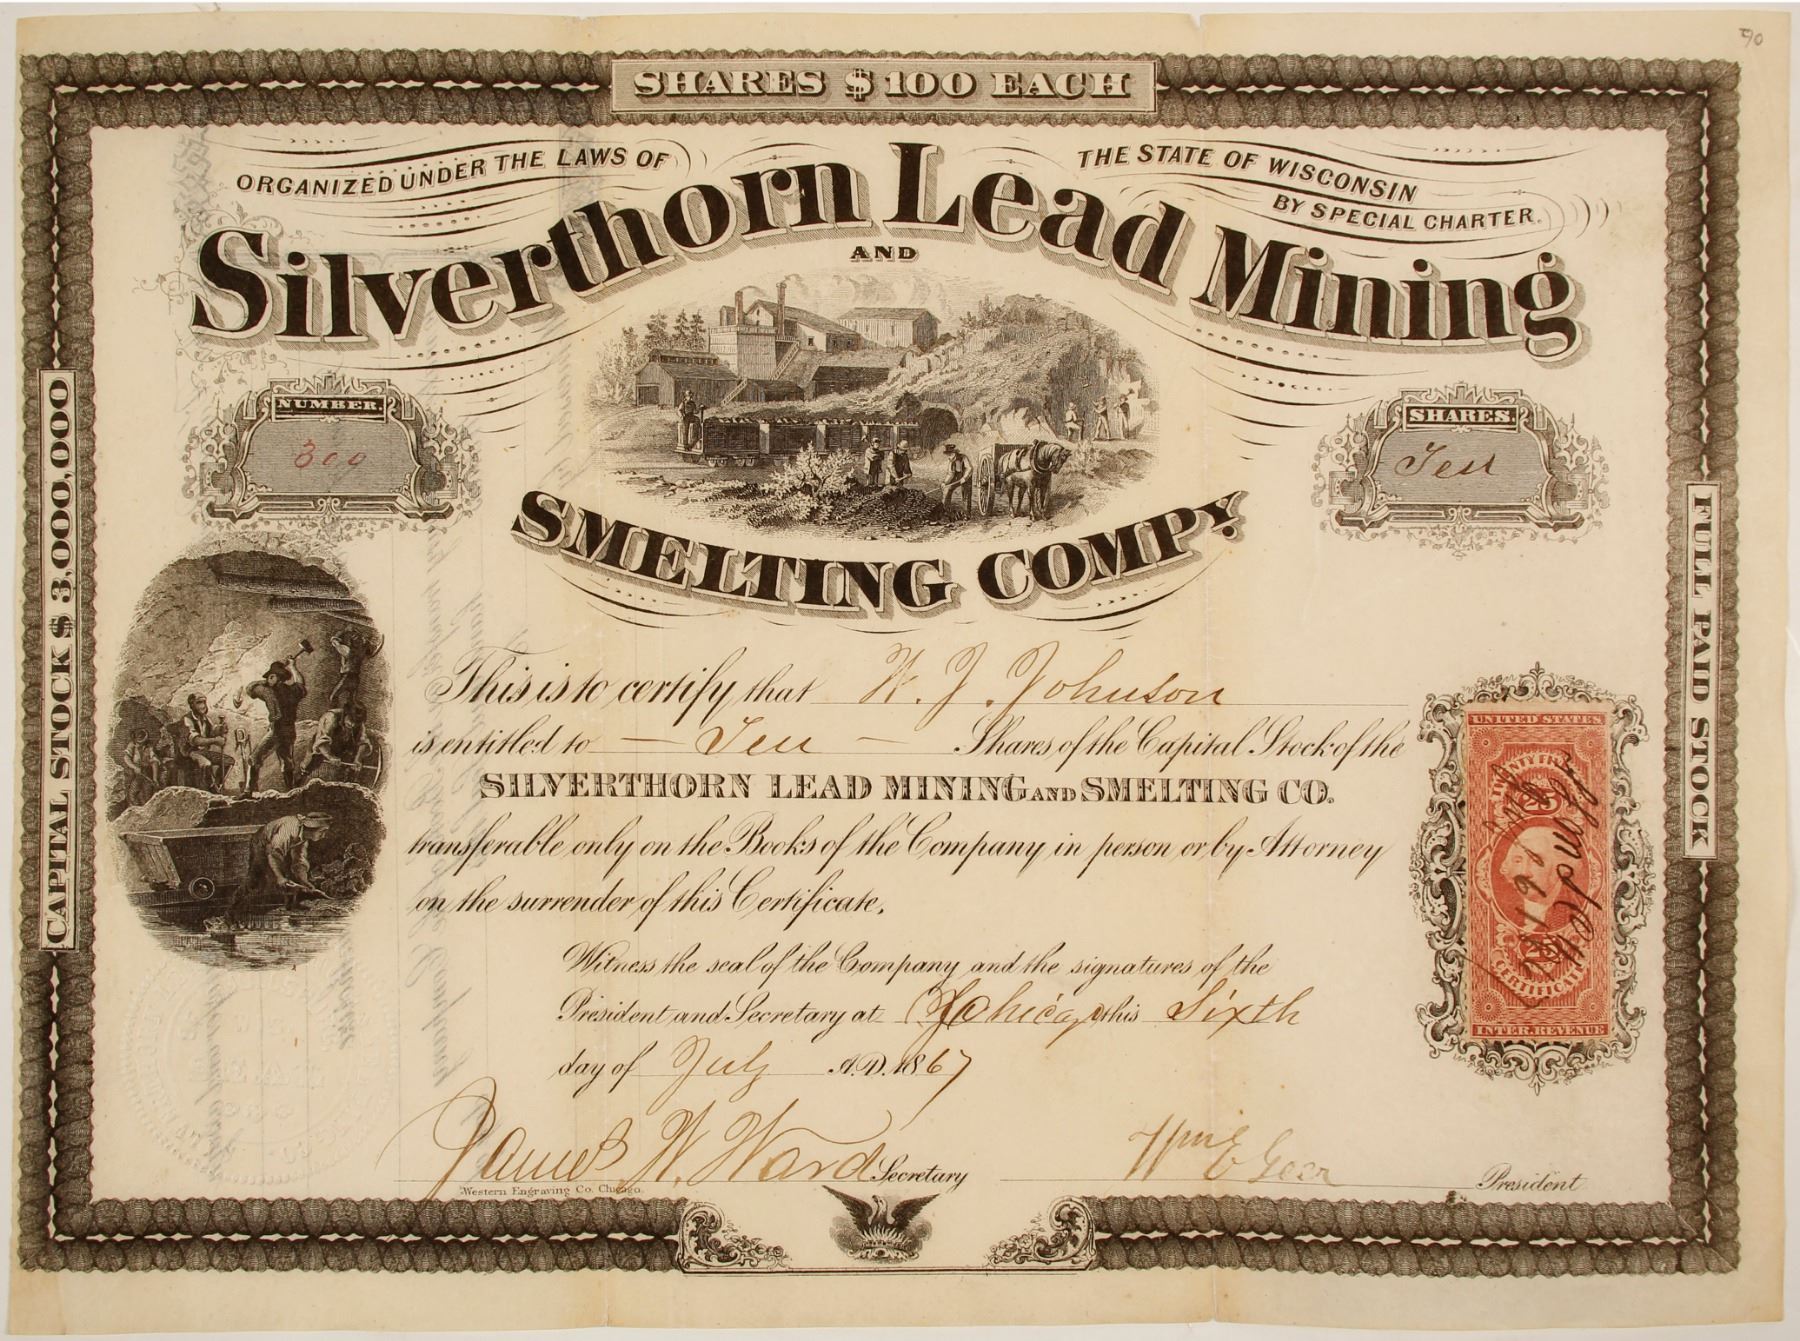 90
SHARES $100 EACH
ORGANIZED UNDER THE LAWS OF
THE STATE OF WISCONSIN
BY SPECIAL CHARTER.
Silverthorn Lead Mining
AND
SMELTING COMPY.
NUMBER.
300
SHARES.
Ten
CAPITAL STOCK $3,000,000
FULL PAID STOCK
This is to certify that W. J. Johnson
is entitled to — Ten — Shares of the Capital Stock of the
SILVERTHORN LEAD MINING AND SMELTING CO.
transferable only on the Books of the Company in person or by Attorney
on the surrender of this Certificate.
Witness the seal of the Company and the signatures of the
President and Secretary at Chicago this Sixth
day of July A.D. 1867
James W. Ward Secretary
Wm E Geer President
Western Engraving Co. Chicago.
UNITED STATES
TWENTY FIVE
25
CERTIFICATE
INTER. REVENUE